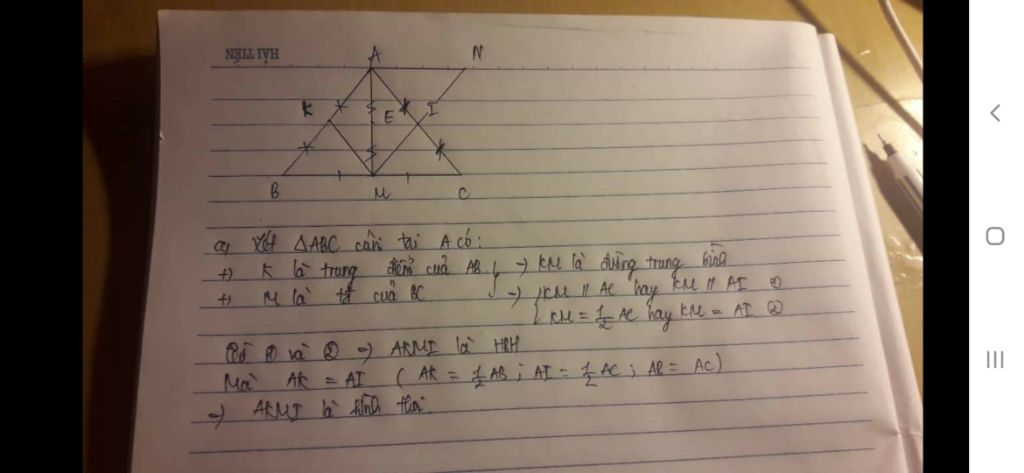 HẢI TIẾN
A N
K E I
B M C
a, Xét △ABC cân tại A có:
+) K là trung điểm của AB } → KM là đường trung bình
+) M là tđ của BC → { KM // AC hay KM // AI ①
KM = 1/2 AC hay KM = AI ②
Từ ① và ② ⇒ AKMI là HBH
Mà AK = AI ( AK = 1/2 AB ; AI = 1/2 AC ; AB = AC)
⇒ AKMI là hình thoi.